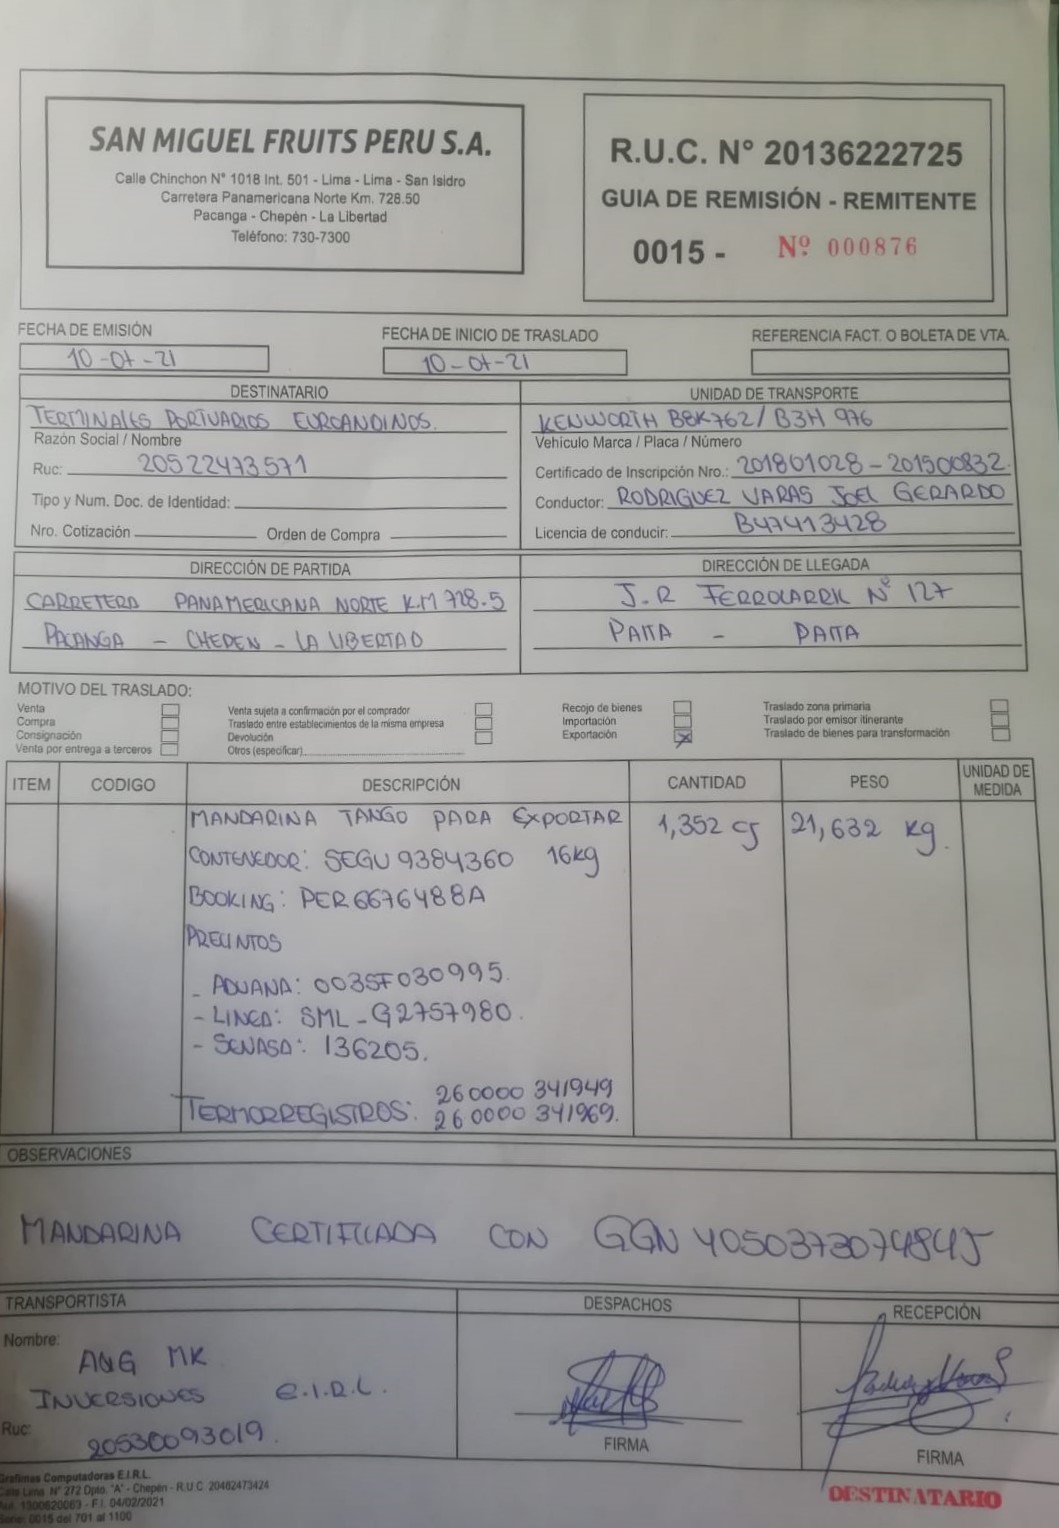 SAN MIGUEL FRUITS PERU S.A.
Calle Chinchon N° 1018 Int. 501 - Lima - Lima - San Isidro
Carretera Panamericana Norte Km. 728.50
Pacanga - Chepén - La Libertad
Teléfono: 730-7300
R.U.C. N° 20136222725
GUIA DE REMISIÓN - REMITENTE
0015 - Nº 000876
FECHA DE EMISIÓN
10-07-21
FECHA DE INICIO DE TRASLADO
10-07-21
REFERENCIA FACT. O BOLETA DE VTA.
DESTINATARIO
TERMINALES PORTUARIOS EUROANDINOS.
Razón Social / Nombre
Ruc: 20522473571
Tipo y Num. Doc. de Identidad:
Nro. Cotización Orden de Compra
UNIDAD DE TRANSPORTE
KENWORTH B8K762/B3H 976
Vehiculo Marca / Placa / Número
Certificado de Inscripción Nro.: 201801028-201500832.
Conductor: RODRIGUEZ VARAS JOEL GERARDO
Licencia de conducir: B47413428
DIRECCIÓN DE PARTIDA
CARRETERA PANAMERICANA NORTE K.M 728.5
PACANGA - CHEPEN - LA LIBERTAD
DIRECCIÓN DE LLEGADA
J.R FERROCARRIL Nº 127
PAITA - PAITA
MOTIVO DEL TRASLADO:
Venta
Compra
Consignación
Venta por entrega a terceros
Venta sujeta a confirmación por el comprador
Traslado entre establecimientos de la misma empresa
Devolución
Otros (especificar)
Recojo de bienes
Importación
Exportación X
Traslado zona primaria
Traslado por emisor itinerante
Traslado de bienes para transformación
ITEM CODIGO DESCRIPCIÓN CANTIDAD PESO UNIDAD DE MEDIDA
MANDARINA TANGO PARA EXPORTAR 1,352 cj 21,632 kg.
CONTENEDOR: SEGU 9384360 16kg
BOOKING: PER6676488A
PRECINTOS
- ADUANA: 0035F030995.
- LINEA: SML-G2757980.
- SENASA: 136205.
260000 341949
TERMORREGISTROS: 260000 341969.
OBSERVACIONES
MANDARINA CERTIFICADA CON GGN 4050373074845
TRANSPORTISTA
Nombre:
A&G MK
INVERSIONES E.I.R.L.
Ruc: 20530093019.
DESPACHOS
FIRMA
RECEPCIÓN
FIRMA
DESTINATARIO
Grafimas Computadoras E.I.R.L.
Calle Lima N° 272 Dpto. "A" - Chepén - R.U.C. 20482473424
- F.I. 04/02/2021
Serie: 0015 del 701 al 1100